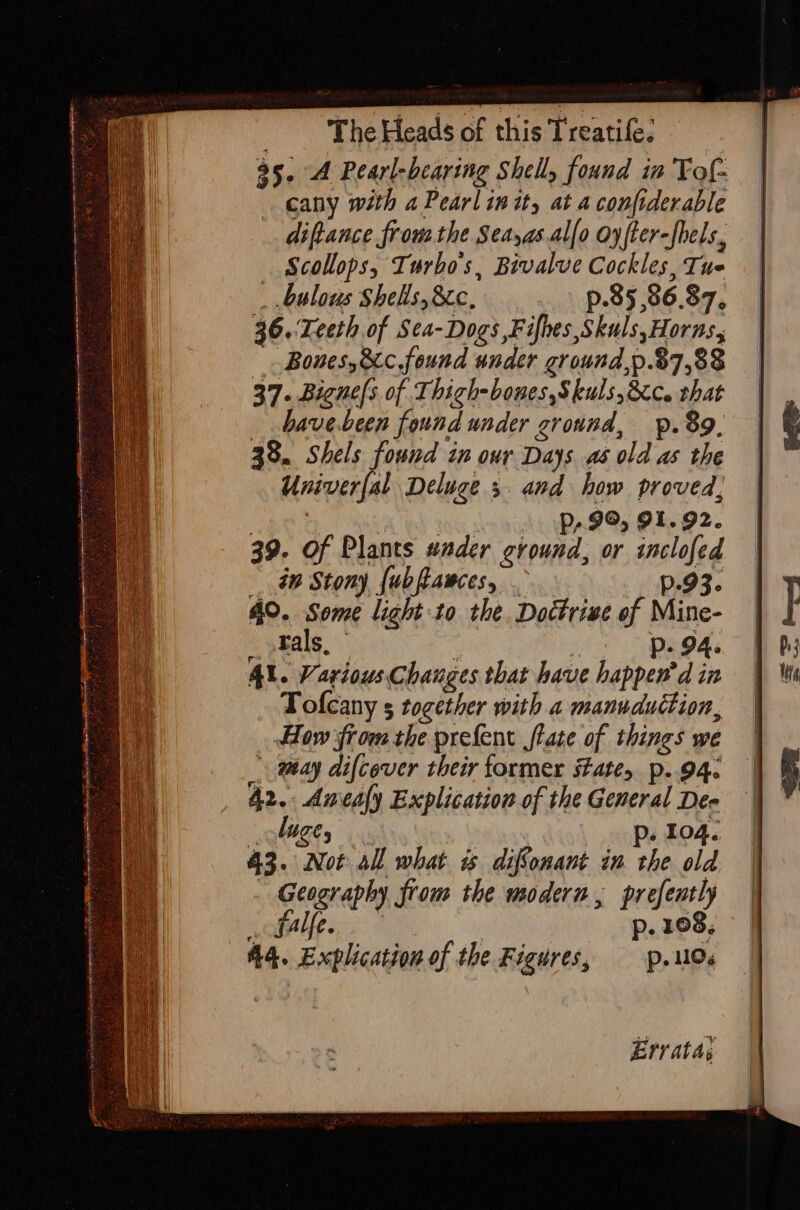 The Heads of this Treatiſe.
35. A Pearl-bearing Shell, found in Toſ-
cany with a Pearl in it, at a conſiderable
diſtance from the Sea, as alſo Oyſter-ſhels,
Scollops, Turbo's, Bivalve Cockles, Tu-
bulous Shells, &c. p.85,86.87.
36. Teeth of Sea-Dogs, Fiſhes, Skuls, Horns,
Bones, &c. found under ground, p.87,88
37. Bigneſs of Thigh-bones, Skuls, &c. that
have been found under ground, p.89.
38. Shels found in our Days as old as the
Univerſal Deluge ; and how proved,
p.90, 91.92.
39. Of Plants under ground, or incloſed
in Stony ſubſtances, p.93.
40. Some light to the Doctrine of Mine-
rals, p.94.
41. Various Changes that have happen'd in
Toſcany ; together with a manuduction,
How from the preſent ſtate of things we
may diſcover their former State, p.94.
42. An eaſy Explication of the General De-
luge, p.104.
43. Not all what is diſſonant in the old
Geography from the modern, preſently
falſe. p.108.
44. Explication of the Figures, p.110.
Errata;